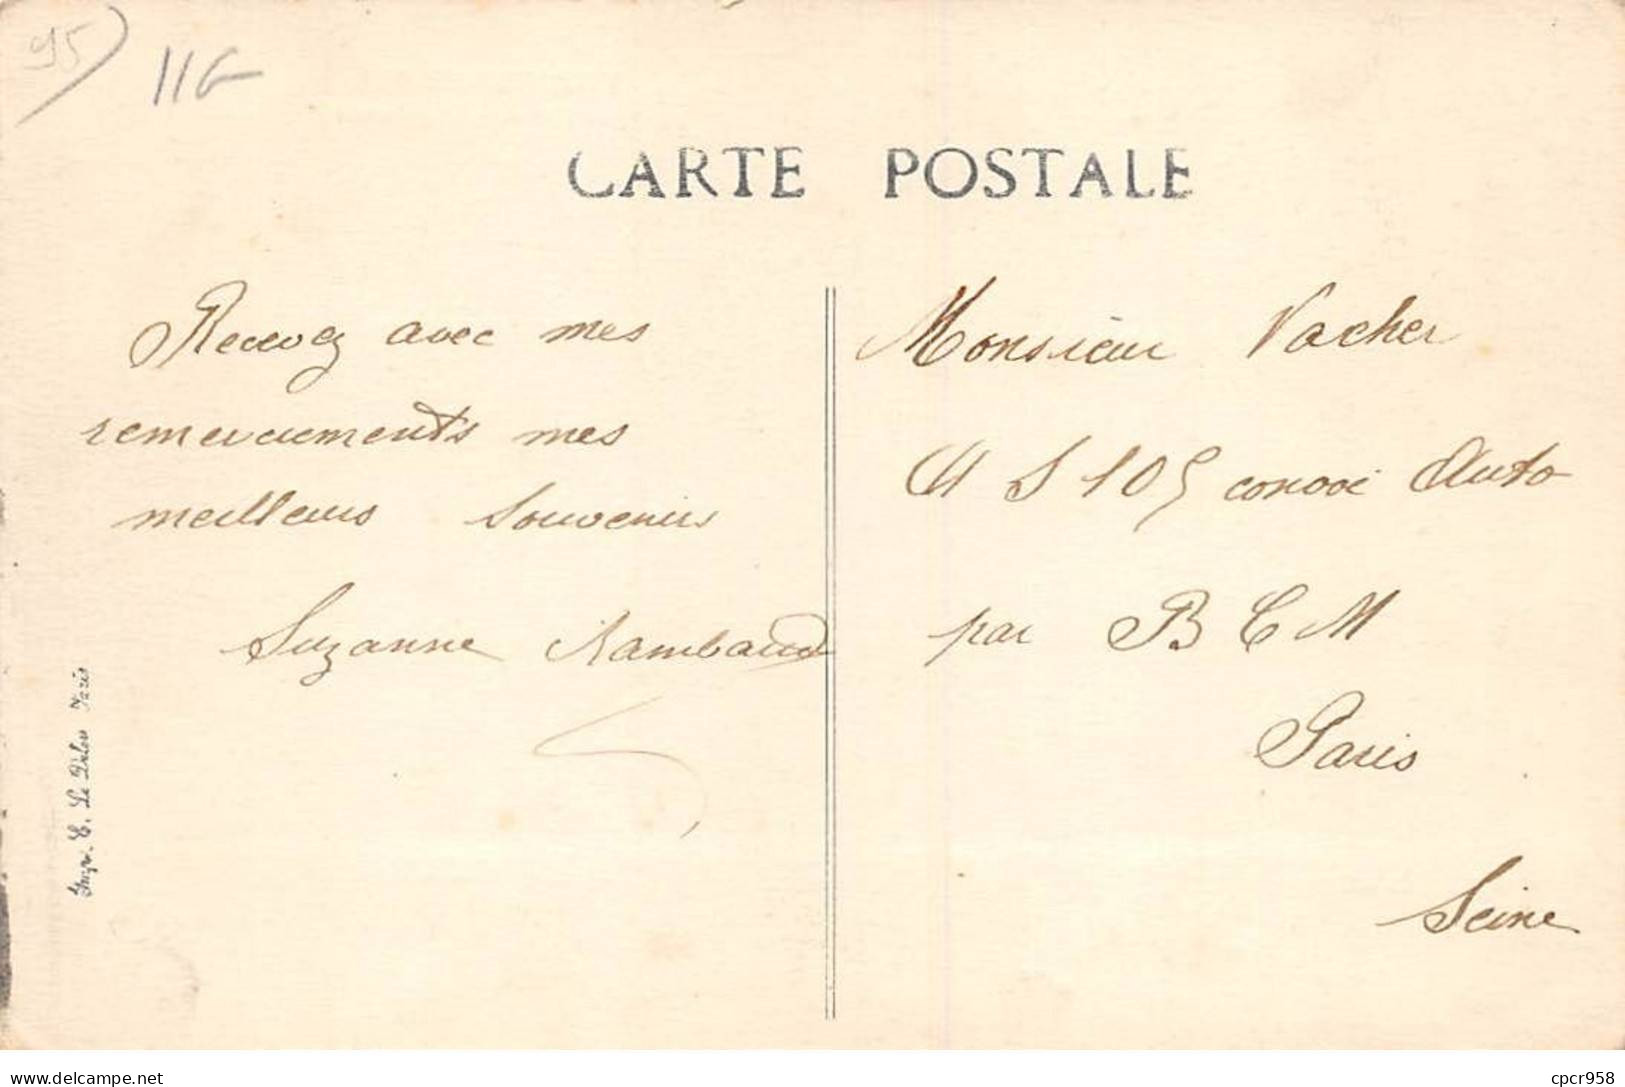 95
11G
CARTE POSTALE
Recevez avec mes
remerciements mes
meilleurs souvenirs
Suzanne Rambaud
Monsieur Vacher
S 105 convoi Auto
par B C M
Paris
Seine
Impr. E. Le Deley Paris
delcampe.net
cpcr958